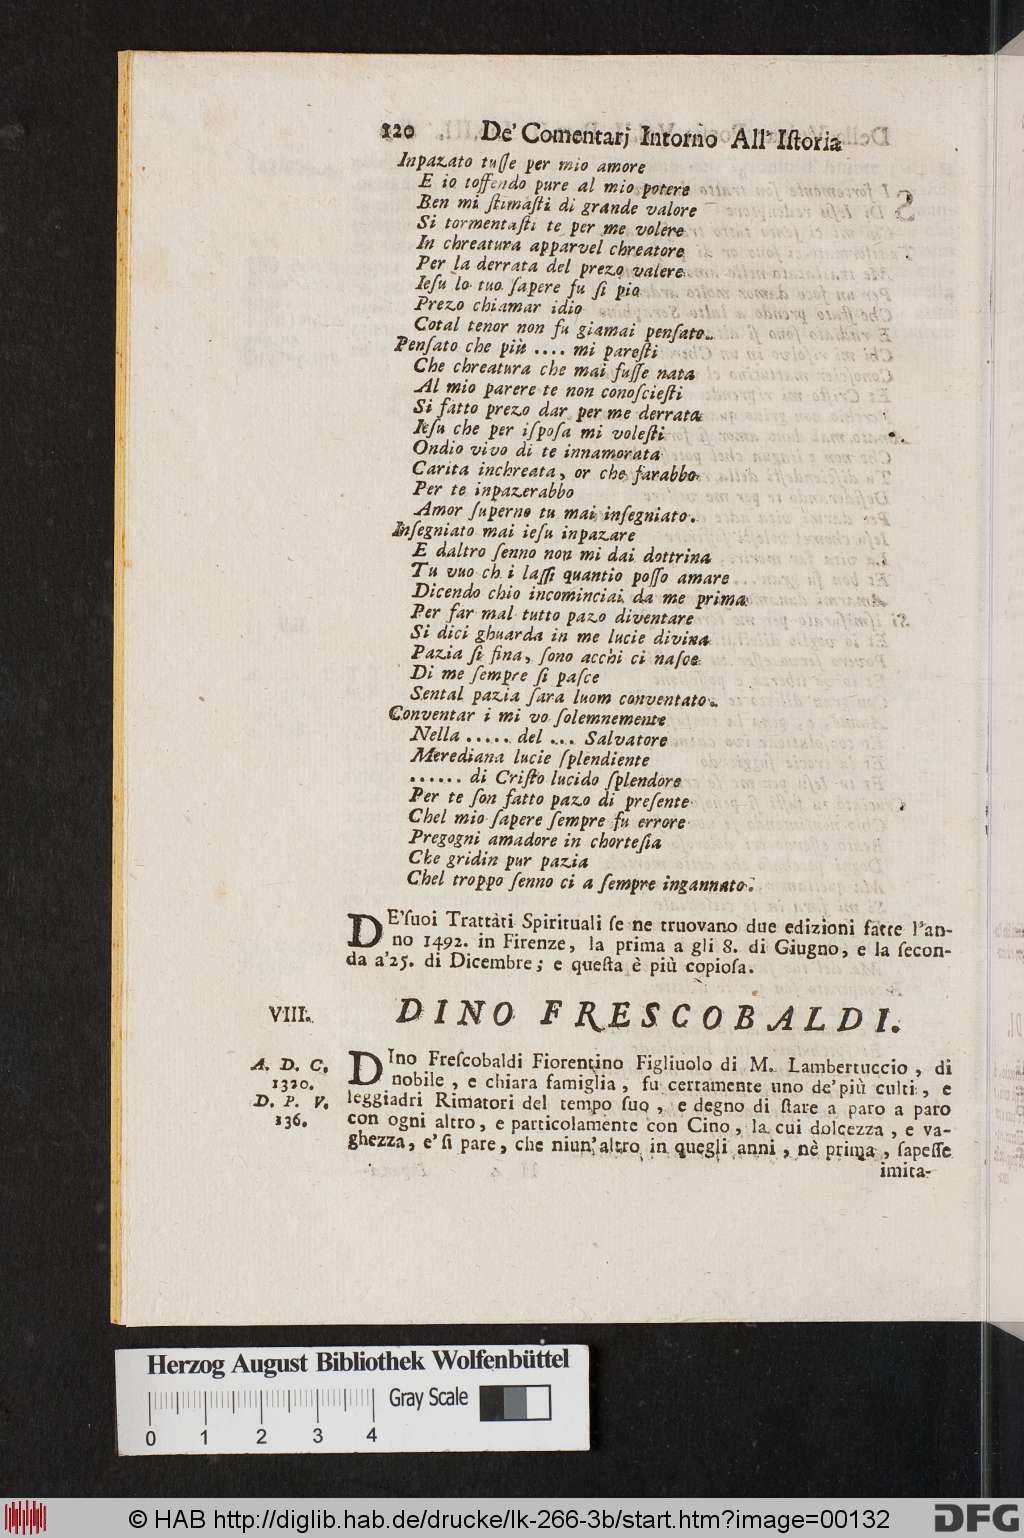 120 De' Comentarj Intorno All' Iſtoria
Inpazato tuſſe per mio amore
E io toffendo pure al mio potere
Ben mi ſtimaſti di grande valore
Si tormentaſti te per me volere
In chreatura apparvel chreatore
Per la derrata del prezo valere
Ieſu lo tuo ſapere fu ſi pio
Prezo chiamar idio
Cotal tenor non fu giamai penſato..
Penſato che più .... mi pareſti
Che chreatura che mai fuſſe nata
Al mio parere te non conoſcieſti
Si fatto prezo dar per me derrata
Ieſu che per iſpoſa mi voleſti
Ondio vivo di te innamorata
Carita inchreata, or che farabbo
Per te inpazerabbo
Amor ſuperno tu mai inſegniato.
Inſegniato mai ieſu inpazare
E daltro ſenno non mi dai dottrina
Tu vuo ch i laſſi quantio poſſo amare
Dicendo chio incominciai da me prima
Per far mal tutto pazo diventare
Si dici ghuarda in me lucie divina
Pazia ſi fina, ſono acchi ci naſce
Di me ſempre ſi paſce
Sental pazia ſara luom conventato..
Conventar i mi vo ſolemnemente
Nella ..... del ... Salvatore
Merediana lucie ſplendiente
...... di Criſto lucido ſplendore
Per te ſon fatto pazo di preſente
Chel mio ſapere ſempre fu errore
Pregogni amadore in chorteſia
Che gridin pur pazia
Chel troppo ſenno ci a ſempre ingannato.
DE'ſuoi Trattati Spirituali ſe ne truovano due edizioni fatte l'an-
no 1492. in Firenze, la prima a gli 8. di Giugno, e la ſecon-
da a'25. di Dicembre; e queſta è più copioſa.
VIII. DINO FRESCOBALDI.
A. D. C.
1320.
D. P. V.
136.
DIno Freſcobaldi Fiorentino Figliuolo di M. Lambertuccio, di
nobile, e chiara famiglia, fu certamente uno de'più culti, e
leggiadri Rimatori del tempo ſuo, e degno di ſtare a paro a paro
con ogni altro, e particolamente con Cino, la cui dolcezza, e va-
ghezza, e' ſi pare, che niun'altro in quegli anni, nè prima, ſapeſſe
imita-
Herzog August Bibliothek Wolfenbüttel
Gray Scale
0 1 2 3 4
© HAB http://diglib.hab.de/drucke/lk-266-3b/start.htm?image=00132
DFG